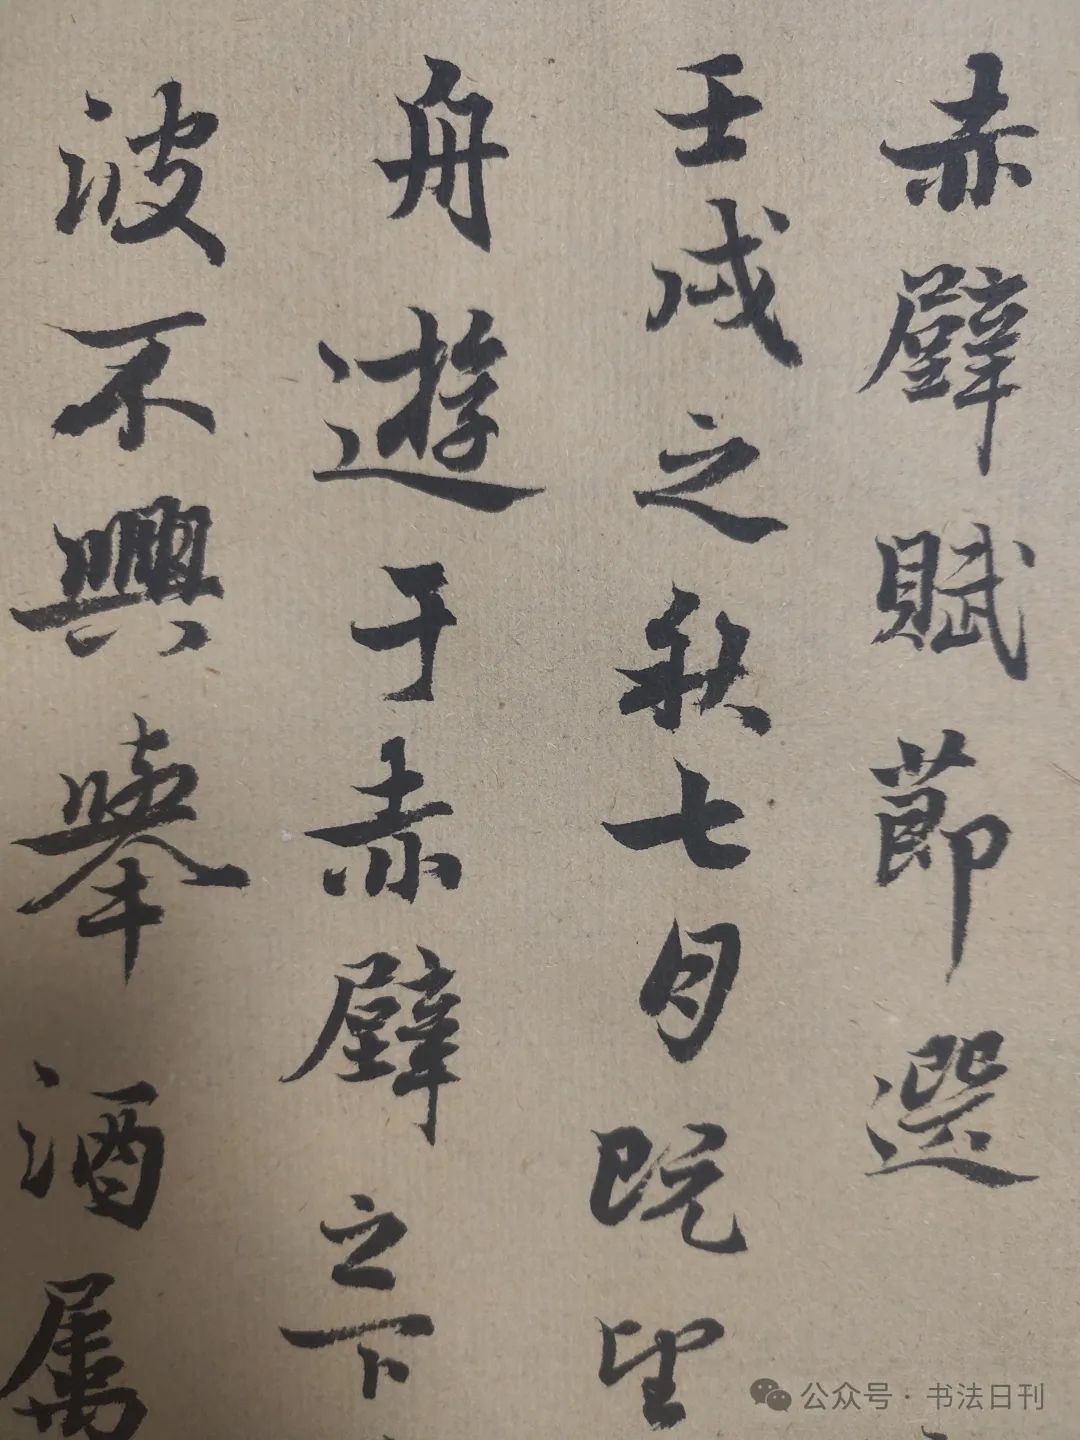 赤壁賦節選
壬戌之秋七月既望
舟遊于赤壁之下
波不興舉酒属
公众号·书法日刊